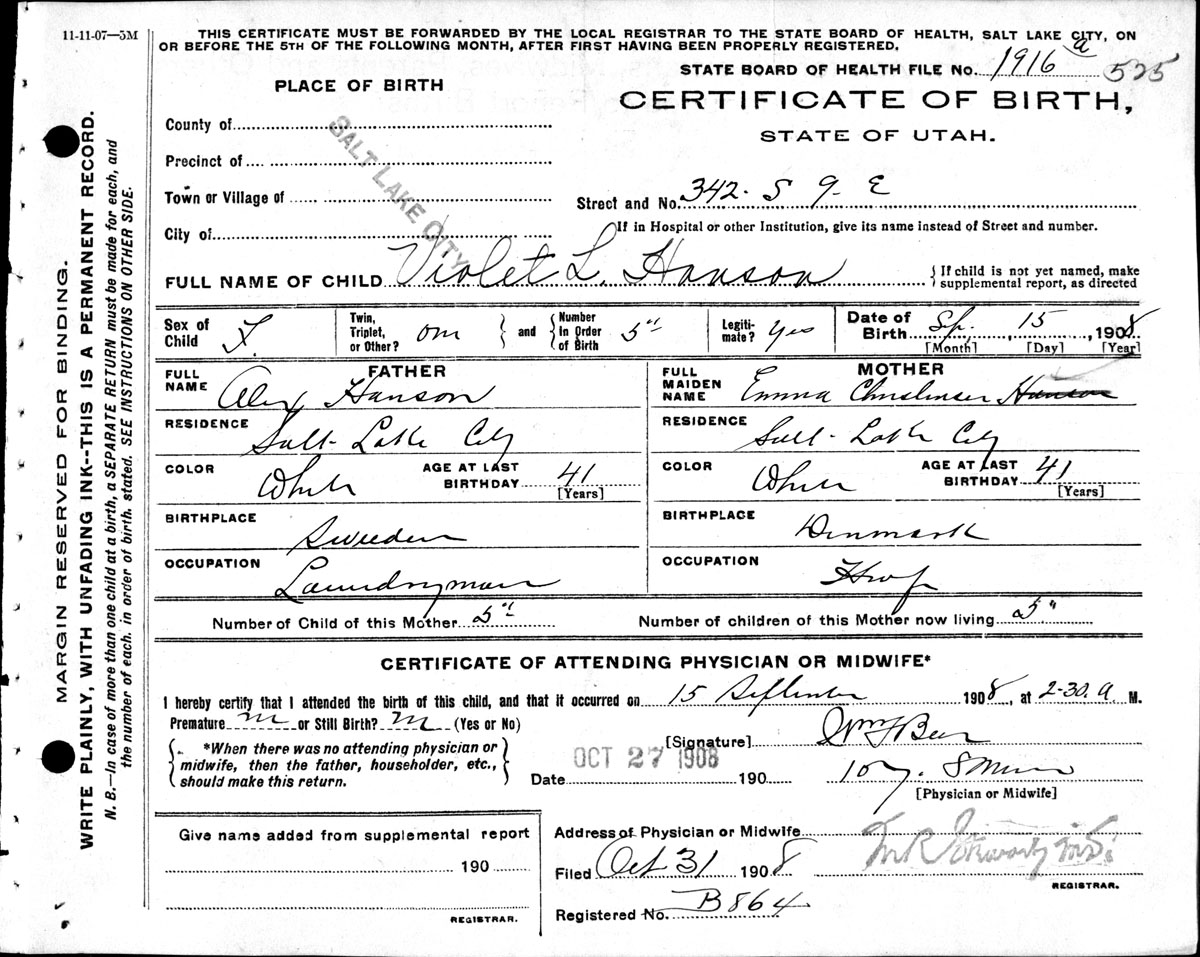 11-11-07—5M
THIS CERTIFICATE MUST BE FORWARDED BY THE LOCAL REGISTRAR TO THE STATE BOARD OF HEALTH, SALT LAKE CITY, ON
OR BEFORE THE 5TH OF THE FOLLOWING MONTH, AFTER FIRST HAVING BEEN PROPERLY REGISTERED.
STATE BOARD OF HEALTH FILE No. 1916 a 525
PLACE OF BIRTH
CERTIFICATE OF BIRTH,
STATE OF UTAH.
County of
Precinct of
Town or Village of
City of
SALT LAKE CITY
Street and No. 342. S 9. E
If in Hospital or other Institution, give its name instead of Street and number.
FULL NAME OF CHILD Violet L. Hanson
If child is not yet named, make
supplemental report, as directed
Sex of Child F.
Twin, Triplet, or Other? and Number In Order of Birth 5"
Legiti-mate? Yes
Date of Birth Sp. 15, 1908
[Month] [Day] [Year]
FATHER
FULL NAME Alex Hanson
RESIDENCE Salt Lake City
COLOR White AGE AT LAST BIRTHDAY 41
[Years]
BIRTHPLACE Sweeden
OCCUPATION Laundryman
MOTHER
FULL MAIDEN NAME Emma Christensen Hanson
RESIDENCE Salt Lake City
COLOR White AGE AT LAST BIRTHDAY 41
[Years]
BIRTHPLACE Denmark
OCCUPATION Hwf
Number of Child of this Mother 5" Number of children of this Mother now living 5"
CERTIFICATE OF ATTENDING PHYSICIAN OR MIDWIFE*
I hereby certify that I attended the birth of this child, and that it occurred on 15 September 1908, at 2-30. a M.
Premature or Still Birth? (Yes or No)
*When there was no attending physician or
midwife, then the father, householder, etc.,
should make this return.
[Signature]
Date OCT 27 1908 190
[Physician or Midwife]
Give name added from supplemental report
190
REGISTRAR.
Address of Physician or Midwife
Filed Oct 31 1908
REGISTRAR.
Registered No. B864
MARGIN RESERVED FOR BINDING.
WRITE PLAINLY, WITH UNFADING INK--THIS IS A PERMANENT RECORD.
N. B.—In case of more than one child at a birth, a SEPARATE RETURN must be made for each, and
the number of each. in order of birth. stated. SEE INSTRUCTIONS ON OTHER SIDE.